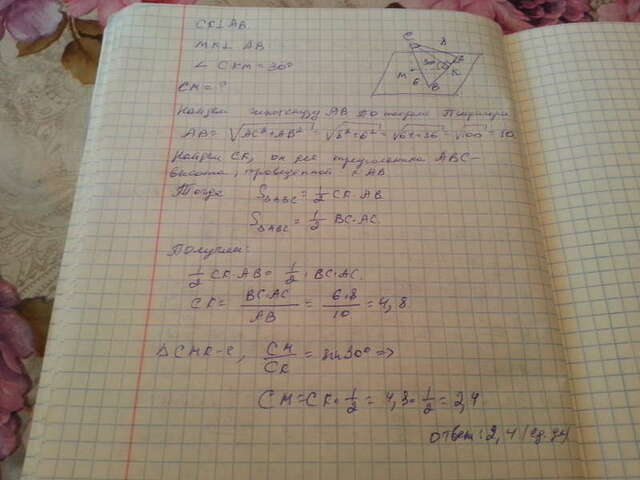 CK⊥AB
MK⊥ AB
∠ CKM = 30°
CM = ?
C 8
M 6 30° A K B
Найдем гипотенузу AB по теореме Пифагора
AB = √AC²+AB² = √8²+6² = √64+36 = √100 = 10
Найдем CK, он для треугольника ABC –
высота, проведенной к AB
Тогда S△ABC = 1/2 CK·AB
S△ABC = 1/2 BC·AC
Получим:
1/2 CK·AB = 1/2 · BC·AC
CK = BC·AC/AB = 6·8/10 = 4,8
△CMK-е, CM/CK = sin30° =>
CM = CK · 1/2 = 4,8 · 1/2 = 2,4
Ответ: 2,4 (ед. дл)